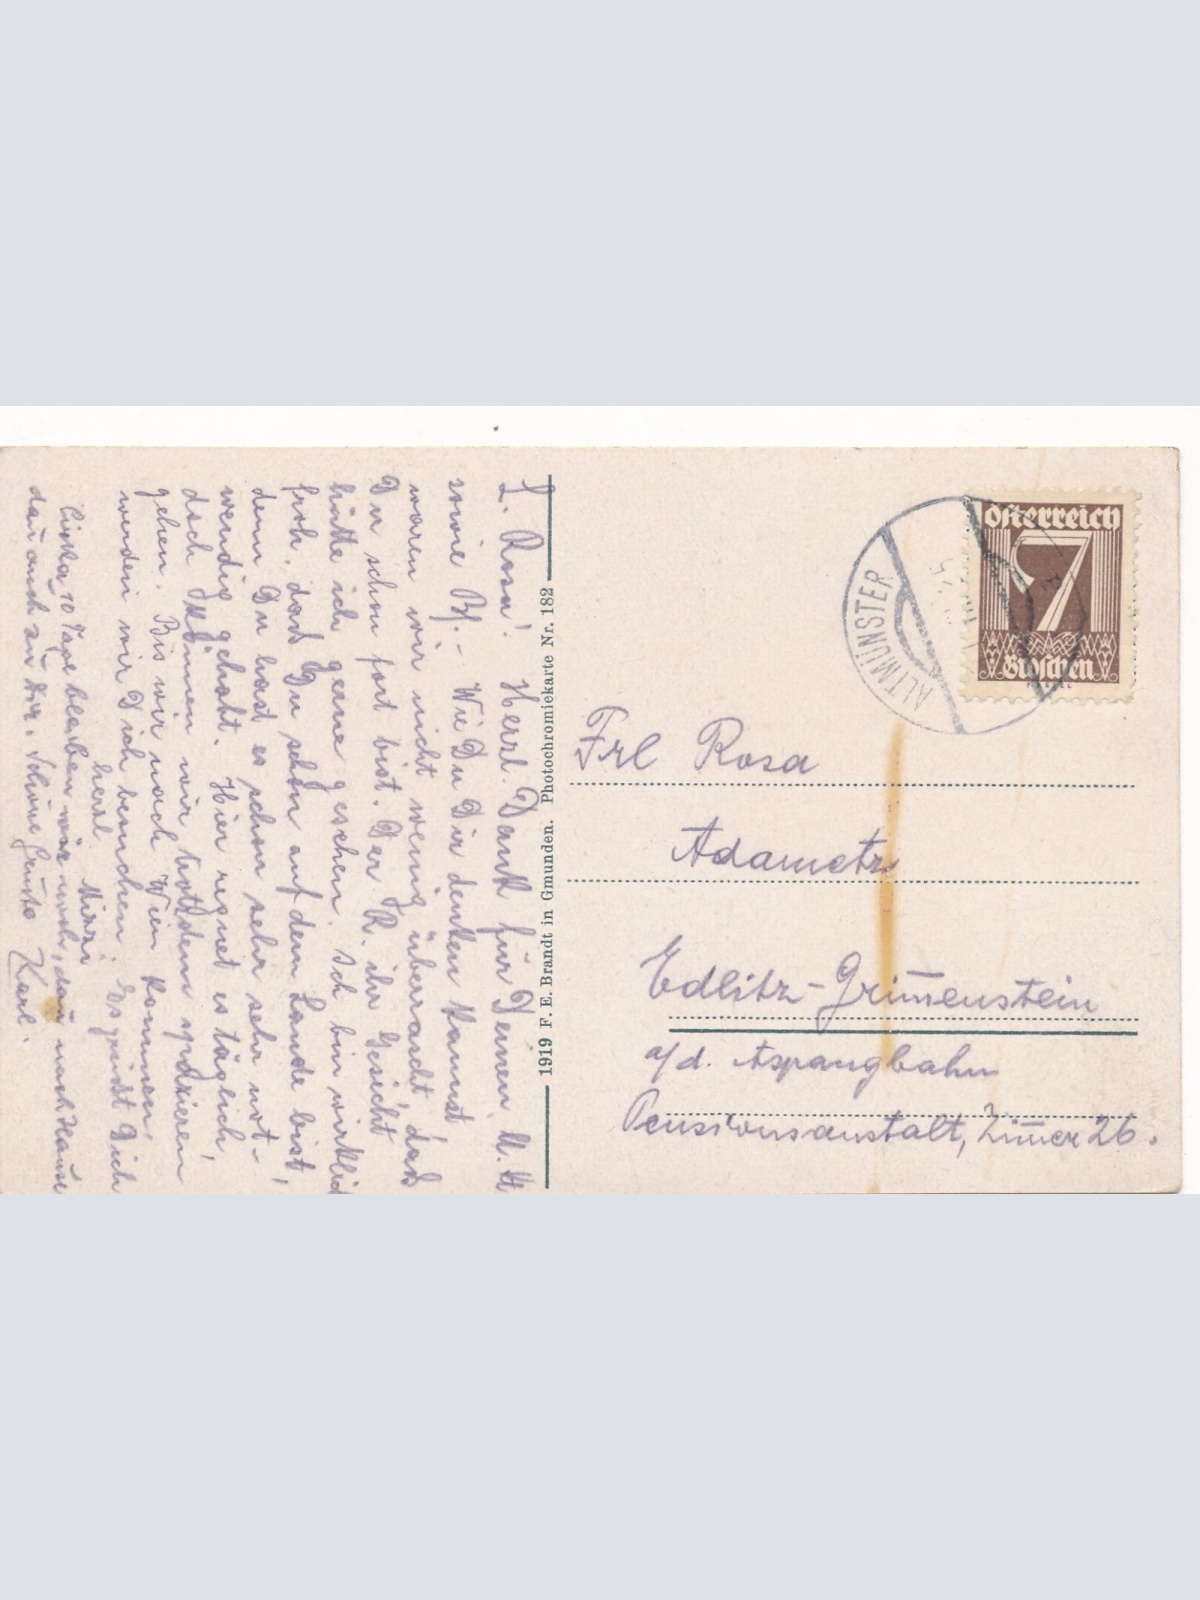 L. Rosa! Herzl. Dank für Deinen
sowie Bf. - Wie Du Dir denken kannst,
waren wir nicht wenig überrascht, daß
Du schon fort bist. Der R. ihr Gesicht
hätte ich gerne gesehen. Ich bin wirklich
froh, daß Du schon auf dem Lande bist,
denn Du hast es schon sehr not-
wendig gehabt. Hier regnet es täglich,
doch können wir trotzdem spazieren
gehen. Bis wir nach Wien kommen,
werden wir Dich besuchen. Es grüßt Dich
herzl. Mizzi
Cirka 10 Tage bleiben wir noch, dann nach Hause
dann auch zu Dir. Schöne Grüße Karl.
1919 F. E. Brandt in Gmunden. Photochromiekarte Nr. 182
Österreich
7
Groschen
ALTMÜNSTER
Frl Rosa
Adametz
Edlitz-Grim̅enstein
a/d. Aspangbahn
Pensionsanstalt, Zim̅er 26.